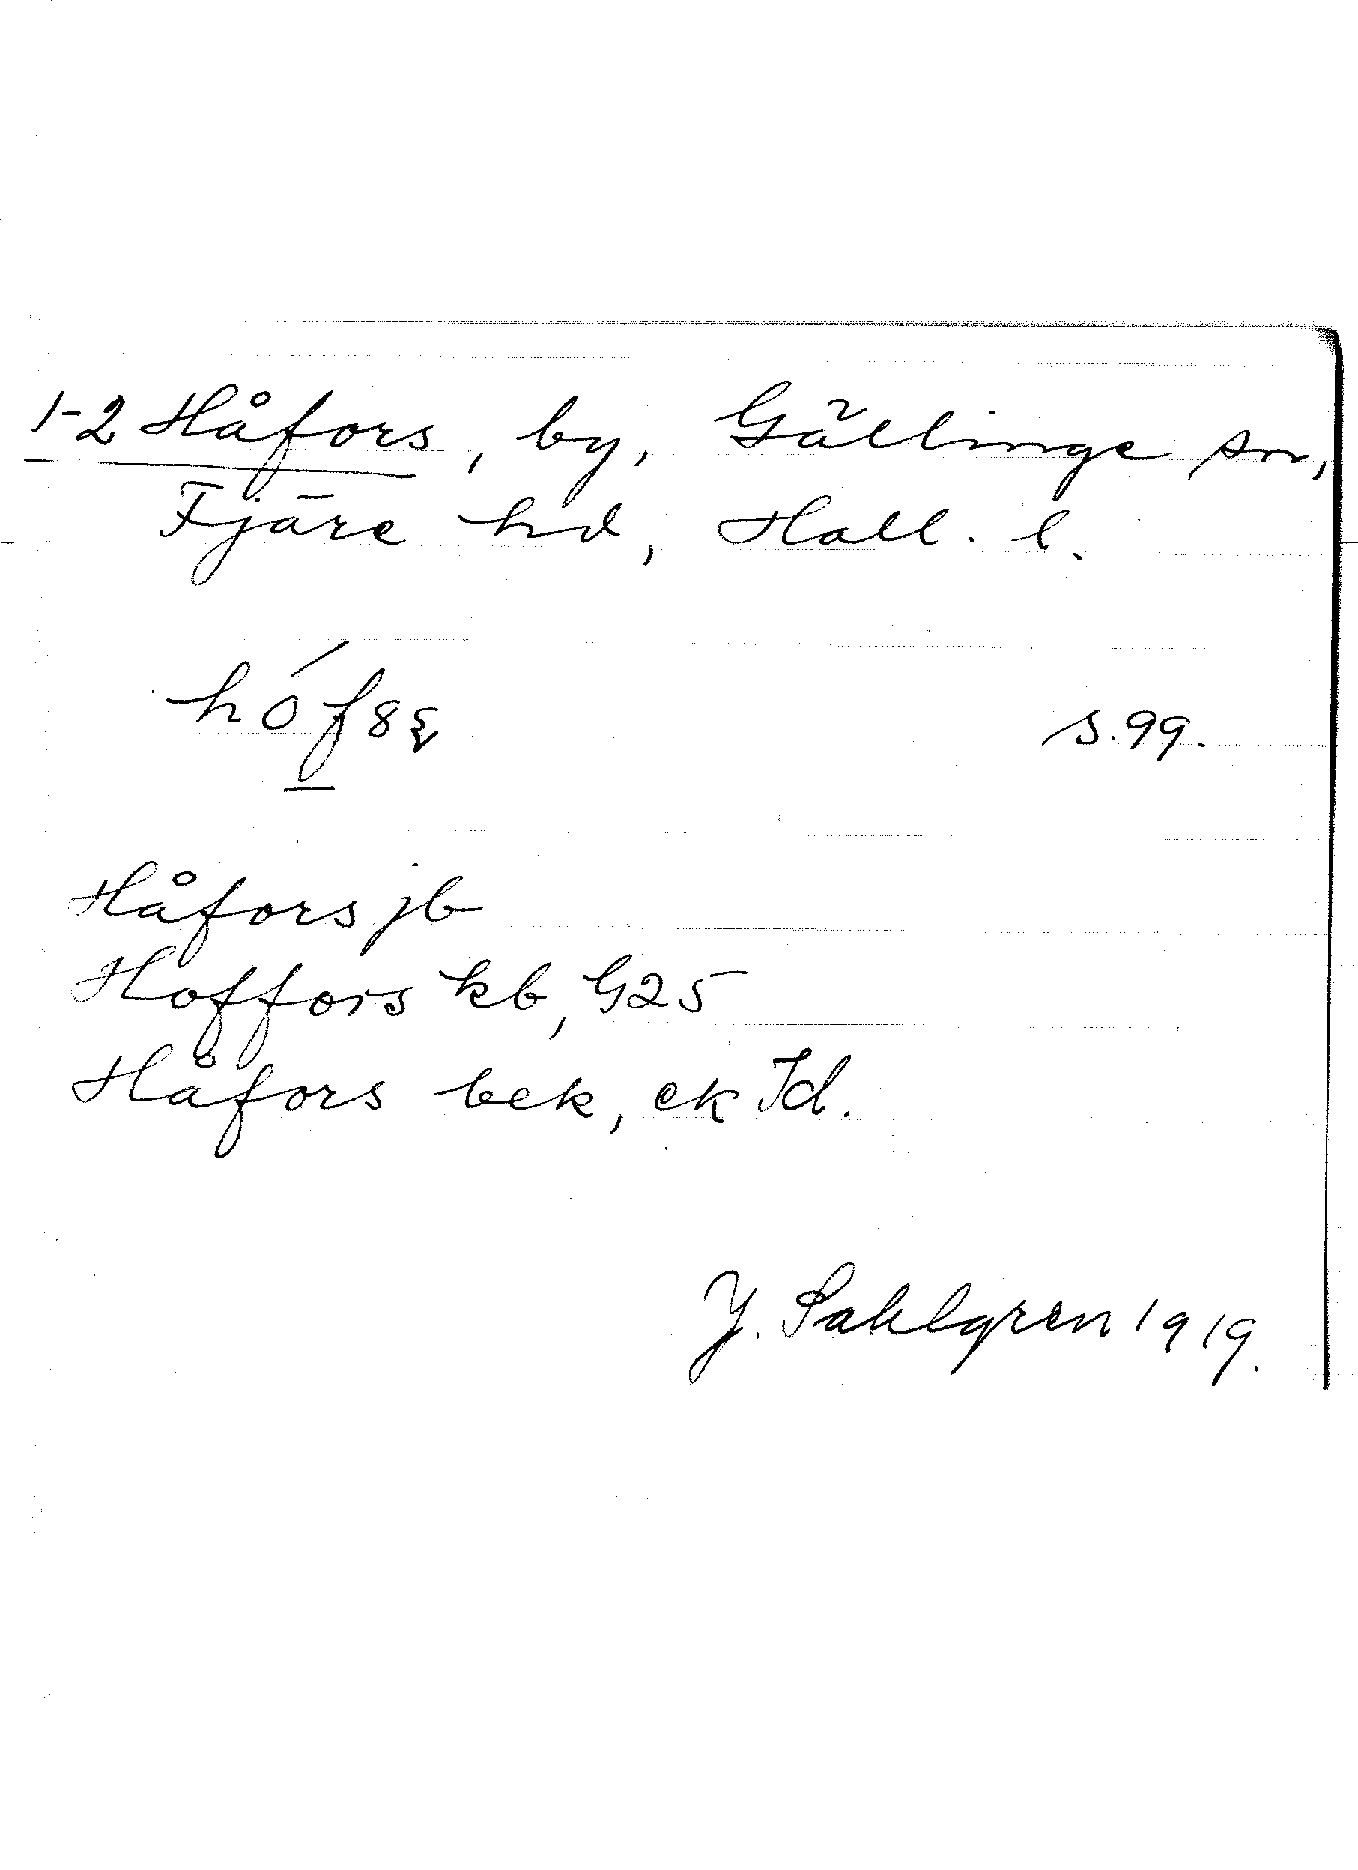 1-2 Håfors, by, Gällinge sn,
Fjäre hd, Hall. l.
s. 99.
Håfors jb
Hoffors kb, G25
Håfors bek, ek Id.
J. Sahlgren 1919.